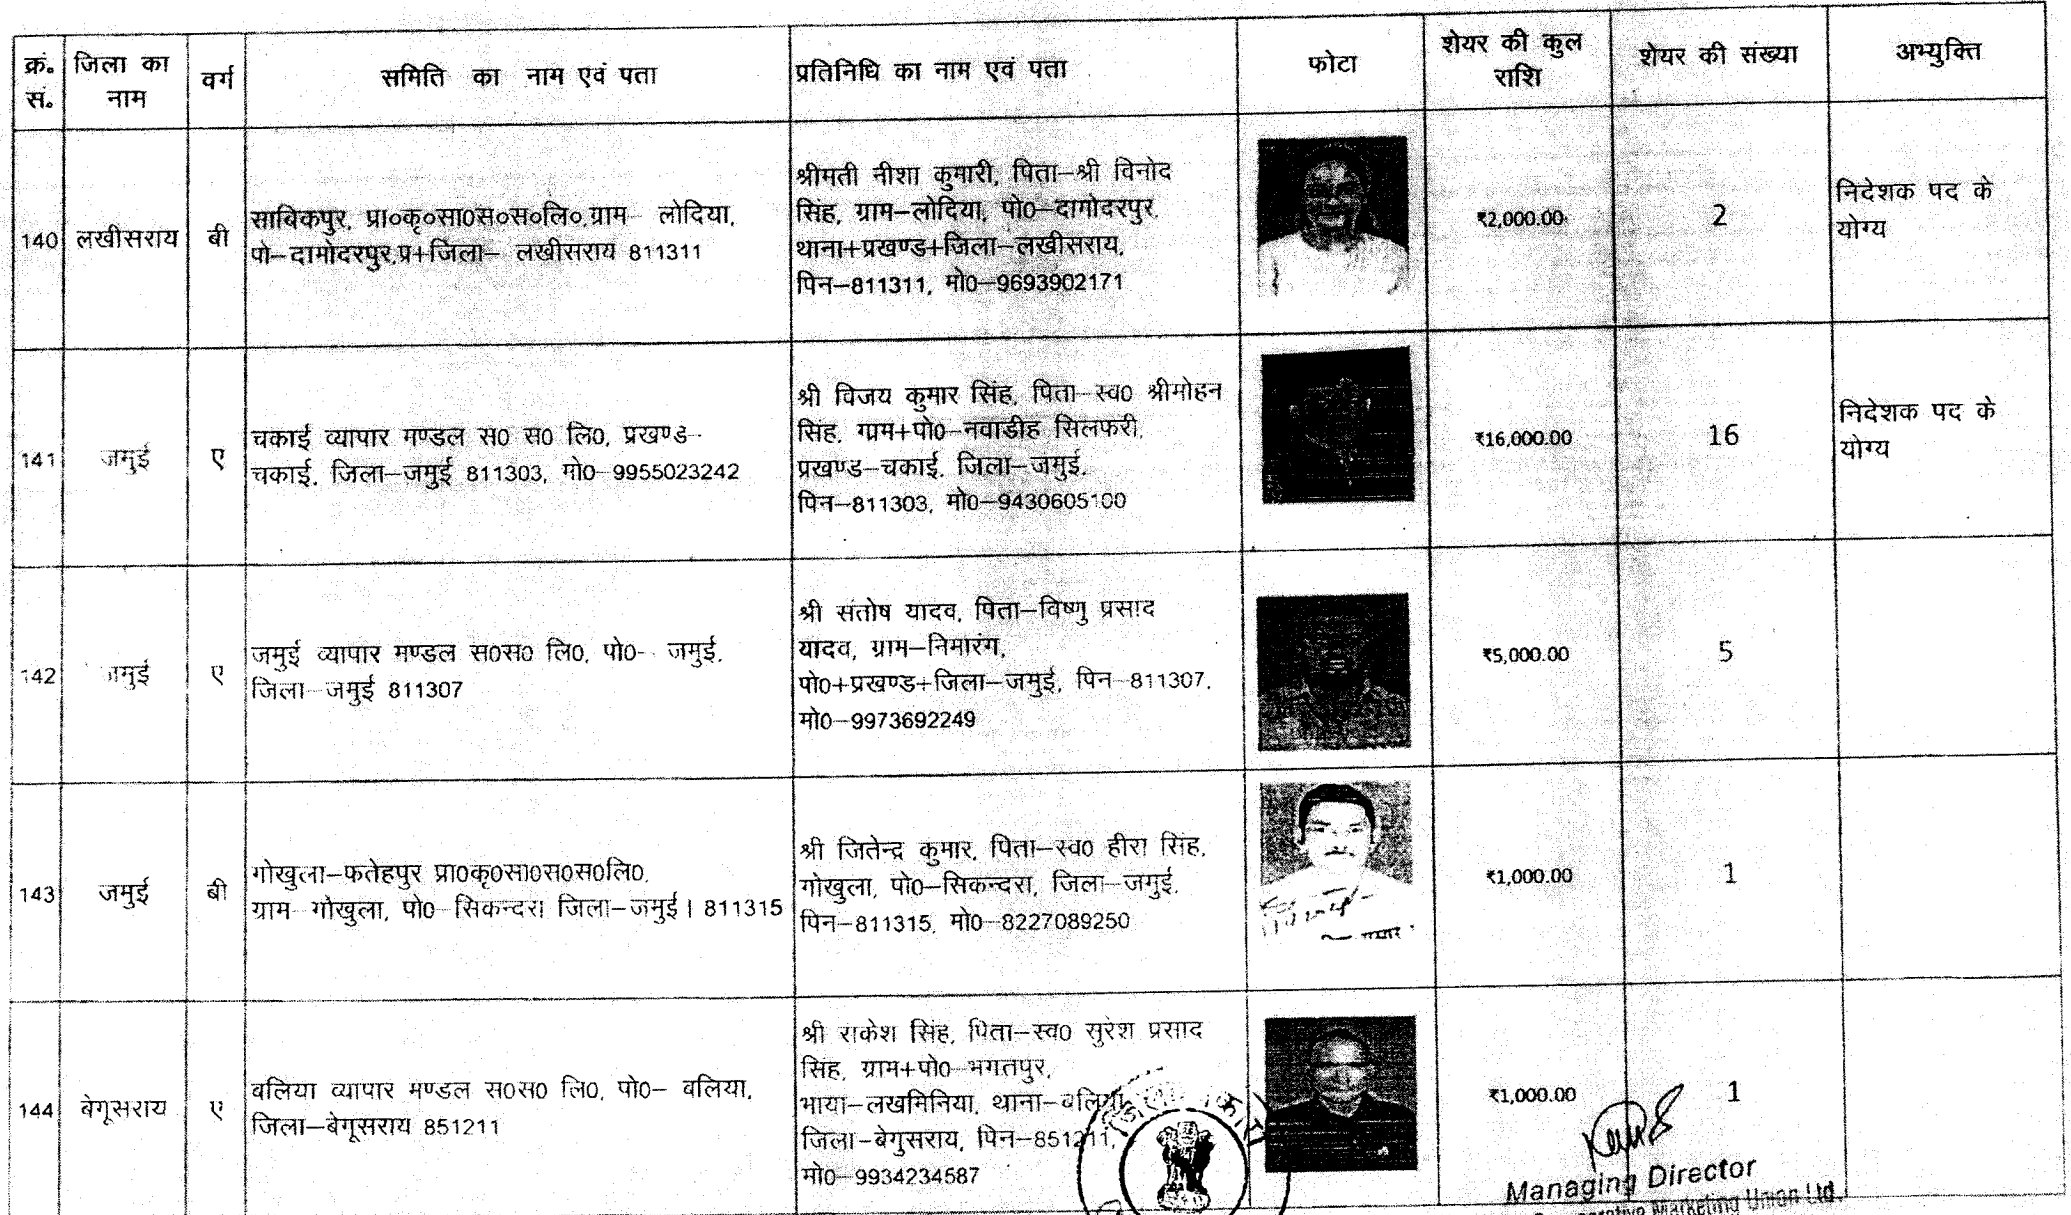 क्रं० सं०
जिला का नाम
वर्ग
समिति का नाम एवं पता
प्रतिनिधि का नाम एवं पता
फोटा
शेयर की कुल राशि
शेयर की संख्या
अभ्युक्ति
140
लखीसराय
बी
साबिकपुर, प्रा०कृ०सा0स०स०लि०,ग्राम– लोदिया,
पो–दामोदरपुर,प्र+जिला– लखीसराय 811311
श्रीमती नीशा कुमारी, पिता–श्री विनोद
सिंह, ग्राम–लोदिया, पो0–दागोदरपुर,
थाना+प्रखण्ड+जिला–लखीसराय,
पिन–811311, मो0–9693902171
₹2,000.00
2
निदेशक पद के
योग्य
141
जमुई
ए
चकाई व्यापार मण्डल स0 स0 लि0, प्रखण्ड–
चकाई, जिला–जमुई 811303, मो0–9955023242
श्री विजय कुमार सिंह, पिता–स्व0 श्रीमोहन
सिंह, ग्राम+पो0–नवाडीह सिलफरी,
प्रखण्ड–चकाई, जिला–जमुई,
पिन–811303, मो0–9430605100
₹16,000.00
16
निदेशक पद के
योग्य
142
जमुई
ए
जमुई व्यापार मण्डल स0स0 लि0, पो0– जमुई,
जिला–जमुई 811307
श्री संतोष यादव, पिता–विष्णु प्रसाद
यादव, ग्राम–निमारंग,
पो0+प्रखण्ड+जिला–जमुई, पिन–811307,
मो0–9973692249
₹5,000.00
5
143
जमुई
बी
गोखुला–फतेहपुर प्रा0कृ0सा0स0स0लि0,
ग्राम–गोखुला, पो0–सिकन्दरा जिला–जमुई। 811315
श्री जितेन्द्र कुमार, पिता–स्व0 हीरा सिंह,
गोखुला, पो0–सिकन्दरा, जिला–जमुई,
पिन–811315, मो0–8227089250
₹1,000.00
1
144
बेगूसराय
ए
बलिया व्यापार मण्डल स0स0 लि0, पो0– बलिया,
जिला–बेगूसराय 851211
श्री राकेश सिंह, पिता–स्व0 सुरेश प्रसाद
सिंह, ग्राम+पो0–भगतपुर,
भाया–लखमिनिया, थाना–बलिया,
जिला–बेगुसराय, पिन–851211,
मो0–9934234587
₹1,000.00
1
Managing Director
Marketing Union Ltd.